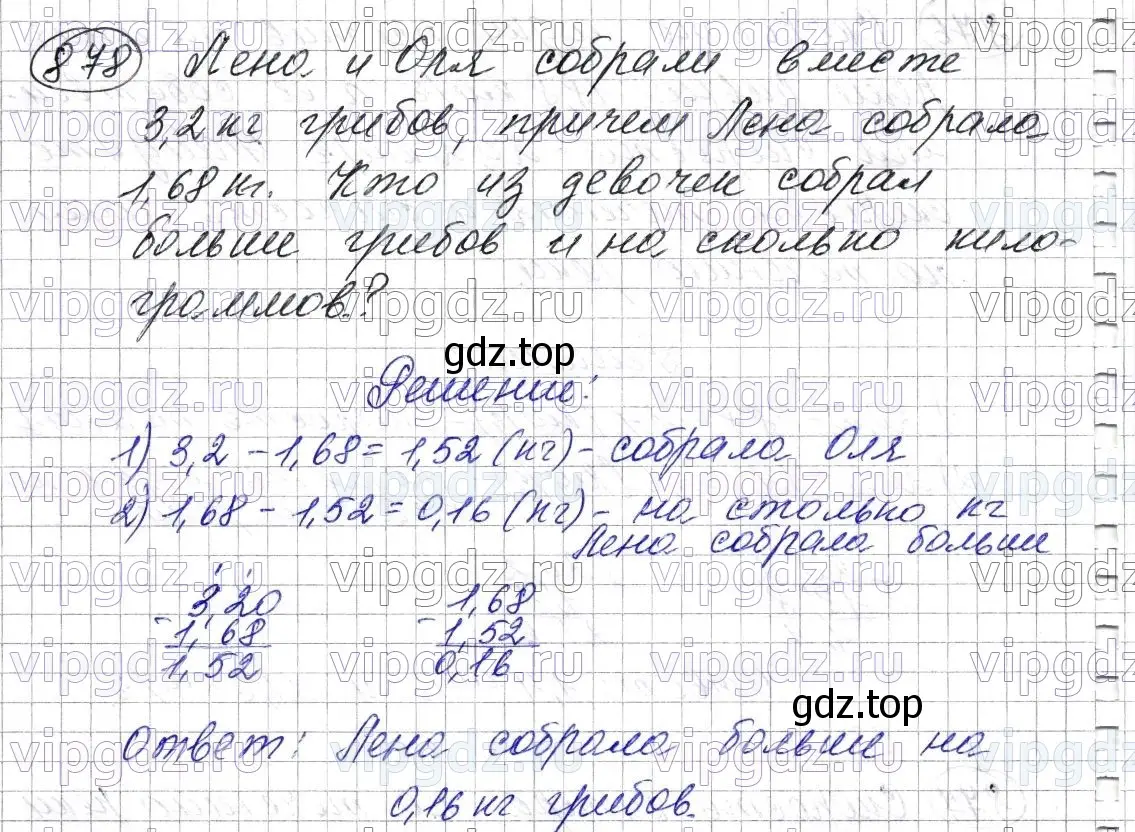 878 Лена и Оля собрали вместе
3,2 кг грибов, причем Лена собрала
1,68 кг. Кто из девочек собрал
больше грибов и на сколько кило-
граммов?
gdz.top
Решение:
1) 3,2 - 1,68 = 1,52 (кг) - собрала Оля
2) 1,68 - 1,52 = 0,16 (кг) - на столько кг
Лена собрала больше
3,20
- 1,68
1,52
1,68
- 1,52
0,16
gdz.top
Ответ: Лена собрала больше на
0,16 кг грибов.
vipgdz.ru